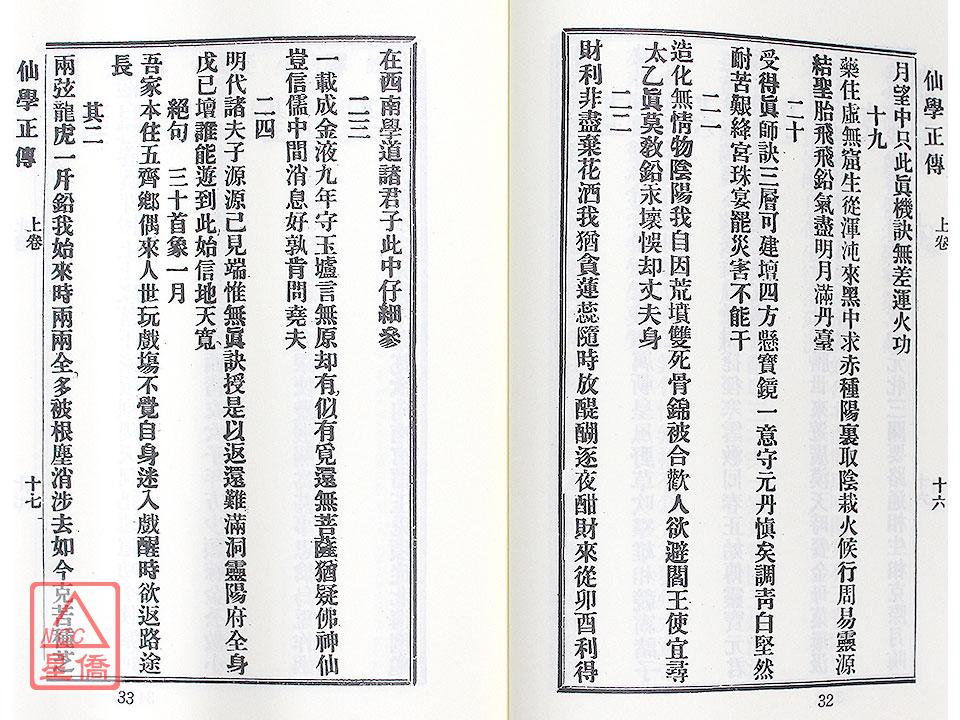 仙學正傳
上卷
十六
月望中只此眞機訣無差運火功
十九
藥住虛無窟生從渾沌來黑中求赤種陽裏取陰栽火候行周易靈源
結聖胎飛飛鉛氣盡明月滿丹臺
二十
受得眞師訣三層可建壇四方懸寶鏡一意守元丹愼矣調靑白堅然
耐苦艱絳宮珠宴罷災害不能干
二一
造化無情物陰陽我自因荒墳雙死骨錦被合歡人欲避閻王使宜尋
太乙眞莫敎鉛汞壞悞却丈夫身
二二
財利非盡棄花酒我猶貪蓮蕊隨時放醍醐逐夜酣財來從卯酉利得
32
在西南學道諸君子此中仔細參
二三
一載成金液九年守玉爐言無原却有似有覓還無菩薩猶疑佛神仙
豈信儒中間消息好孰肯問堯夫
二四
明代諸夫子源源已見端惟無眞訣授是以返還難滿洞靈陽府全身
戊己壇誰能遊到此始信地天寬
絕句 三十首象一月
吾家本住五齊鄉偶來人世玩戲塲不覺自身迷入戲醒時欲返路途
長
其二
兩弦龍虎一斤鉛我始來時兩兩全多被根塵消涉去如今克苦種芝
仙學正傳
上卷
十七
33
NCC
星僑